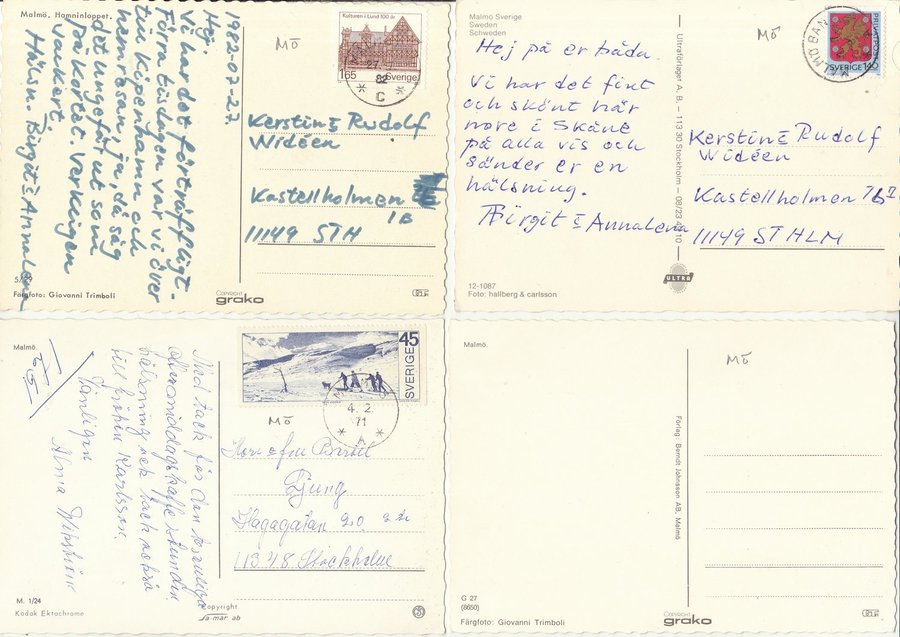 Malmö. Hamninloppet.
MÖ
Kulturen i Lund 100 år
165 Sverige
82
C
1982-07-27
Hej.
Vi har det förträffligt.
Förra tisdagen var vi över
till Köpenhamn och
hem resan, ja, då såg
det ungefär ut som
på kortet. Verkligen
vackert.
Hälsn. Birgit & Annalena
Kerstin & Rudolf
Wideen
Kastellholmen
1 B
11149 STH
5/29
Färgfoto: Giovanni Trimboli
Copyright
grako
Malmö Sverige
Sweden
Schweden
MÖ
PRIVATPOST
SVERIGE 140
MALMÖ BAN
Hej på er båda.
Vi har det fint
och skönt här
nere i Skåne
på alla vis och
sänder er en
hälsning.
Birgit & Annalena
Ultraförlaget A. B. – 113 30 Stockholm – 08/23 45 10
Kerstin & Rudolf
Wideen
Kastellholmen
11149 STHLM
12-1087
Foto: hallberg & carlsson
ULTRA
Malmö.
SVERIGE 45
MÖ
4. 2.
71
A
Med tack för den
eftermiddagskaffe stunden
hälsning och tack också
till fröken Karlsson.
Vänligen
Ljung
Hagagatan 20
113 48. Stockholm
M. 1/24
Kodak Ektachrome
Copyright
Sa-mar ab
Malmö.
MÖ
Förlag: Berndt Johnsson AB, Malmö
G 27
(8650)
Färgfoto: Giovanni Trimboli
Copyright
grako